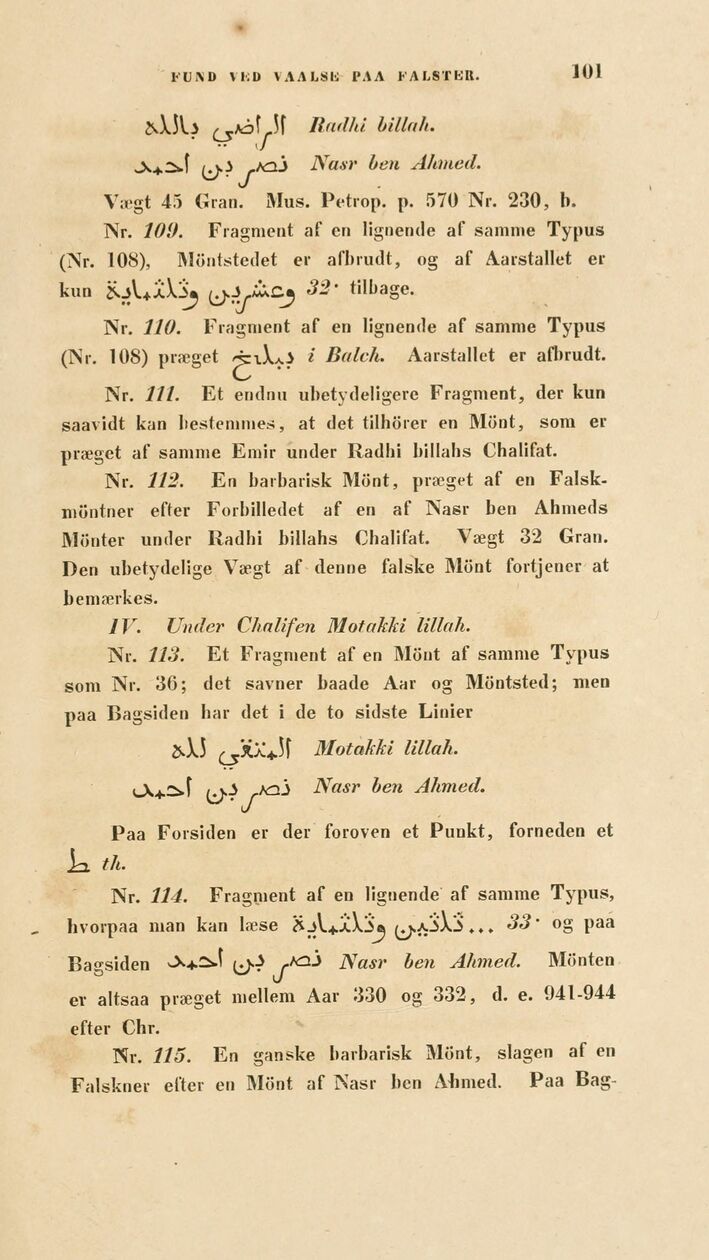 FUND VED VAALSE PAA FALSTER. 101
الراضي بالله Radhi billah.
نصر بن احمد Nasr ben Ahmed.
Vægt 45 Gran. Mus. Petrop. p. 570 Nr. 230, b.
Nr. 109. Fragment af en lignende af samme Typus
(Nr. 108), Möntstedet er afbrudt, og af Aarstallet er
kun وعشرين وثلثماية 32· tilbage.
Nr. 110. Fragment af en lignende af samme Typus
(Nr. 108) præget ببلخ i Balch. Aarstallet er afbrudt.
Nr. 111. Et endnu ubetydeligere Fragment, der kun
saavidt kan bestemmes, at det tilhörer en Mönt, som er
præget af samme Emir under Radhi billahs Chalifat.
Nr. 112. En barbarisk Mönt, præget af en Falsk-
möntner efter Forbilledet af en af Nasr ben Ahmeds
Mönter under Radhi billahs Chalifat. Vægt 32 Gran.
Den ubetydelige Vægt af denne falske Mönt fortjener at
bemærkes.
IV. Under Chalifen Motakki lillah.
Nr. 113. Et Fragment af en Mönt af samme Typus
som Nr. 36; det savner baade Aar og Möntsted; men
paa Bagsiden har det i de to sidste Linier
المتقي لله Motakki lillah.
نصر بن احمد Nasr ben Ahmed.
Paa Forsiden er der foroven et Punkt, forneden et
ط th.
Nr. 114. Fragment af en lignende af samme Typus,
hvorpaa man kan læse ... ثلثين وثلثماية 33· og paa
Bagsiden نصر بن احمد Nasr ben Ahmed. Mönten
er altsaa præget mellem Aar 330 og 332, d. e. 941-944
efter Chr.
Nr. 115. En ganske barbarisk Mönt, slagen af en
Falskner efter en Mönt af Nasr ben Ahmed. Paa Bag-